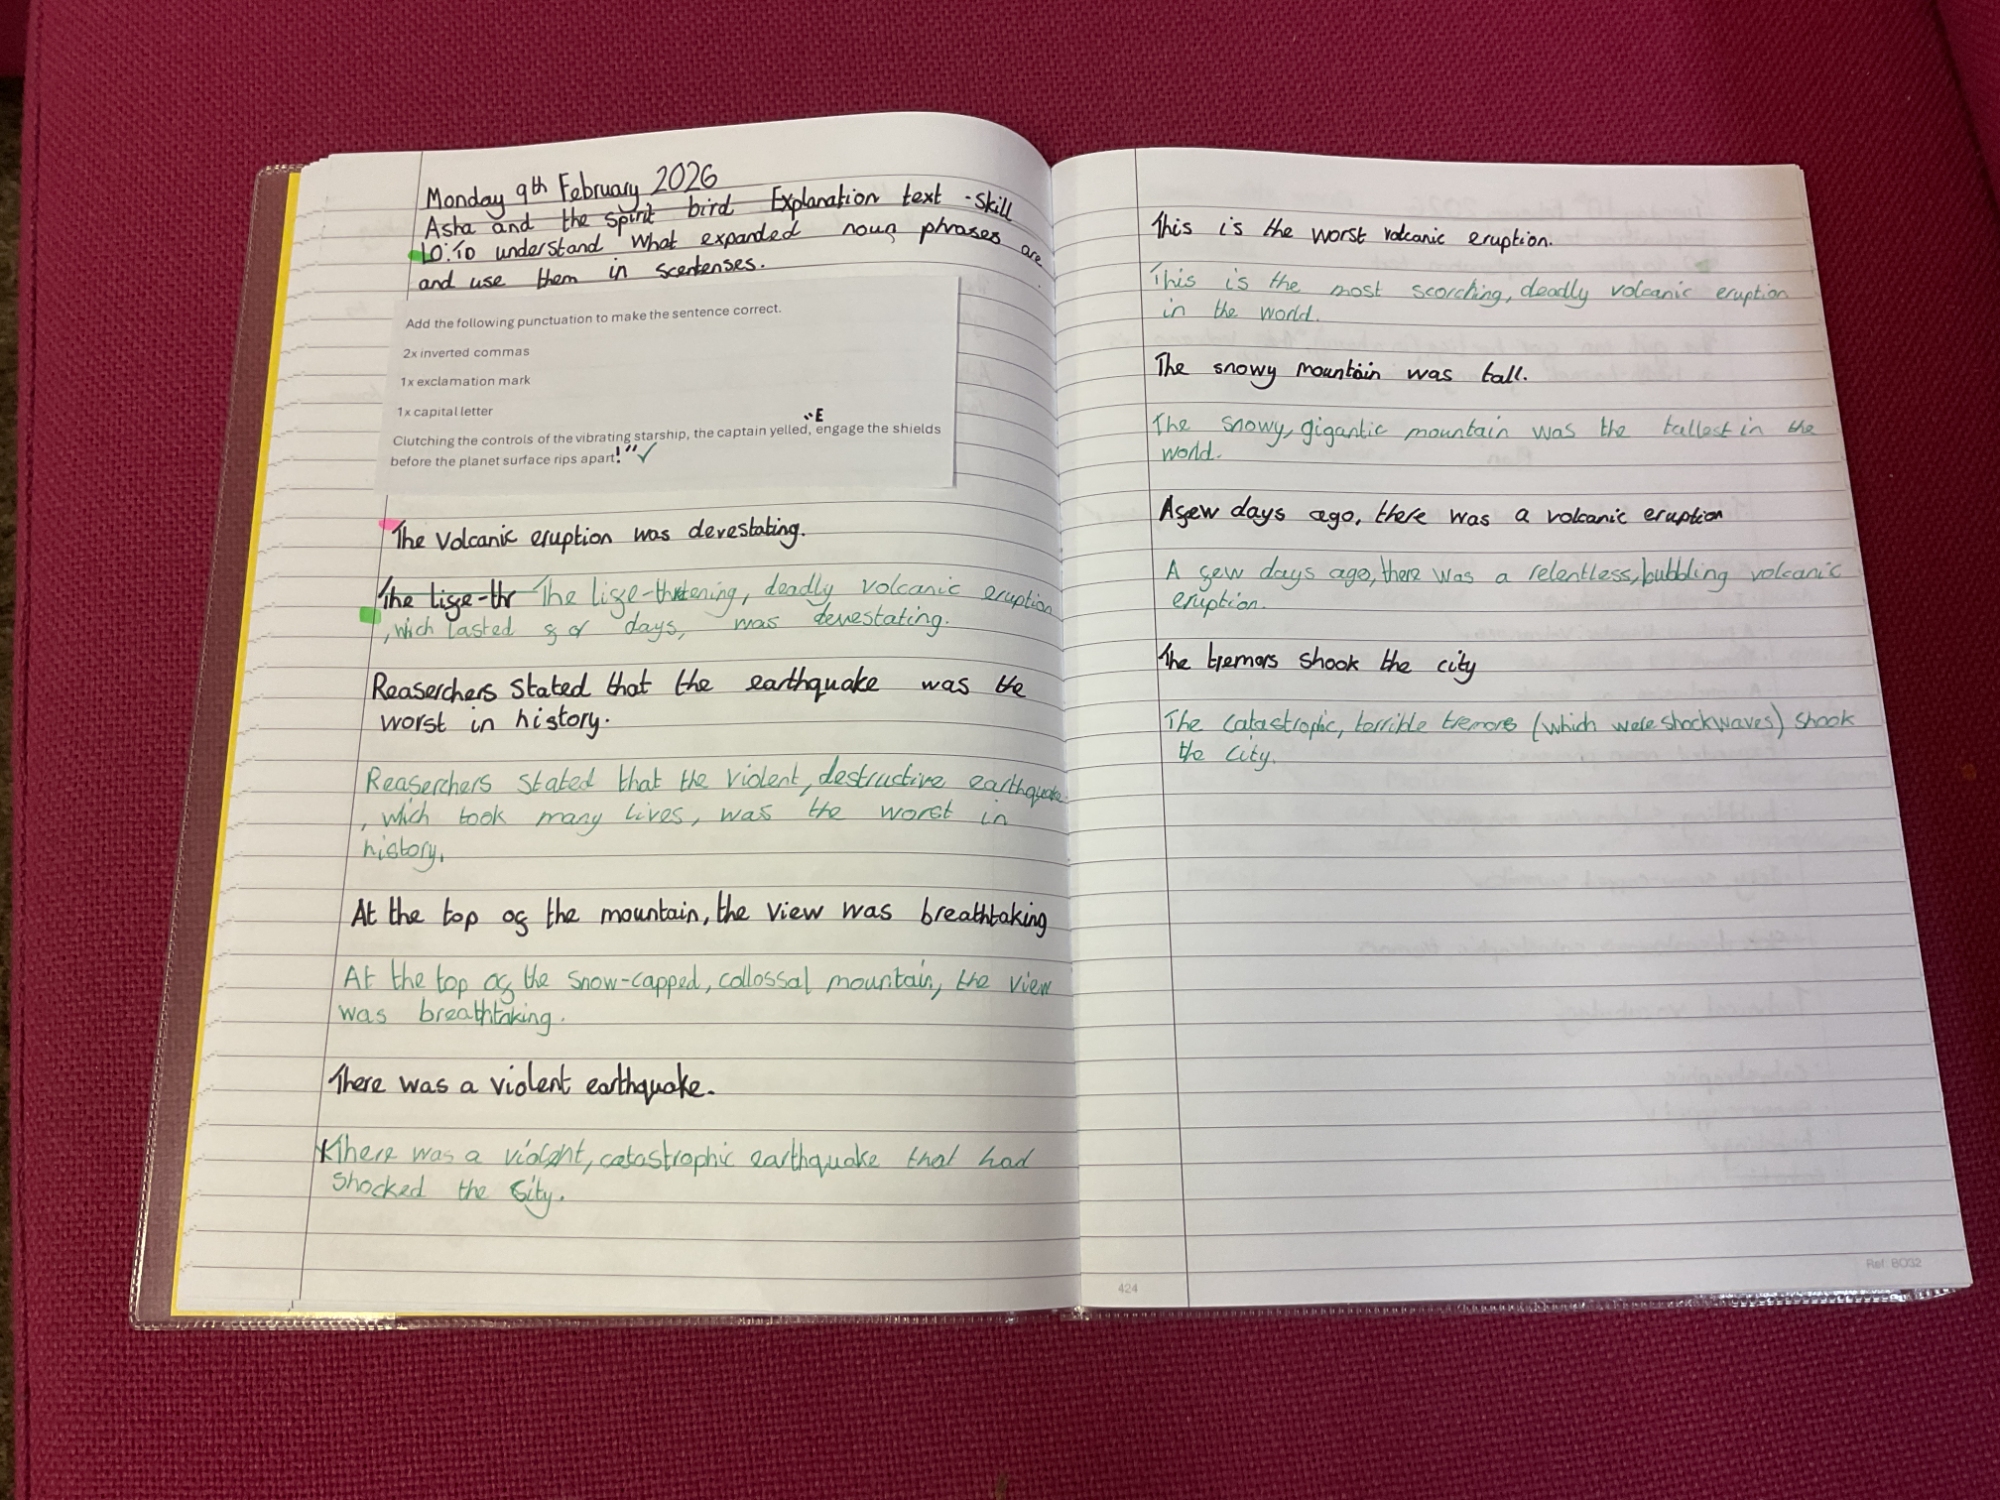 Monday 9th February 2026
Asha and the spirit bird Explanation text - Skill
LO: To understand what expanded noun phrases are
and use them in scentenses.
Add the following punctuation to make the sentence correct.
2x inverted commas
1x exclamation mark
1x capital letter
"E
Clutching the controls of the vibrating starship, the captain yelled, engage the shields
before the planet surface rips apart!"✓
The Volcanic eruption was devestating.
The life-thr The life-thretening, deadly volcanic eruption
, wich lasted for days, was devestating.
Reaserchers stated that the earthquake was the
worst in history.
Reaserchers stated that the violent, destructive earthquake
, wich took many lives, was the worst in
history.
At the top of the mountain, the view was breathtaking
At the top of the snow-capped, collossal mountain, the view
was breathtaking.
There was a violent earthquake.
There was a violent, catastrophic earthquake that had
shocked the city.
This is the worst volcanic eruption.
This is the most scorching, deadly volcanic eruption
in the world.
The snowy mountain was tall.
The snowy, gigantic mountain was the tallest in the
world.
A few days ago, there was a volcanic eruption
A few days ago, there was a relentless, bubbling volcanic
eruption.
The tremors shook the city
The catastrophic, terrible tremors (which were shockwaves) shook
the city.
424
Ref: BO32